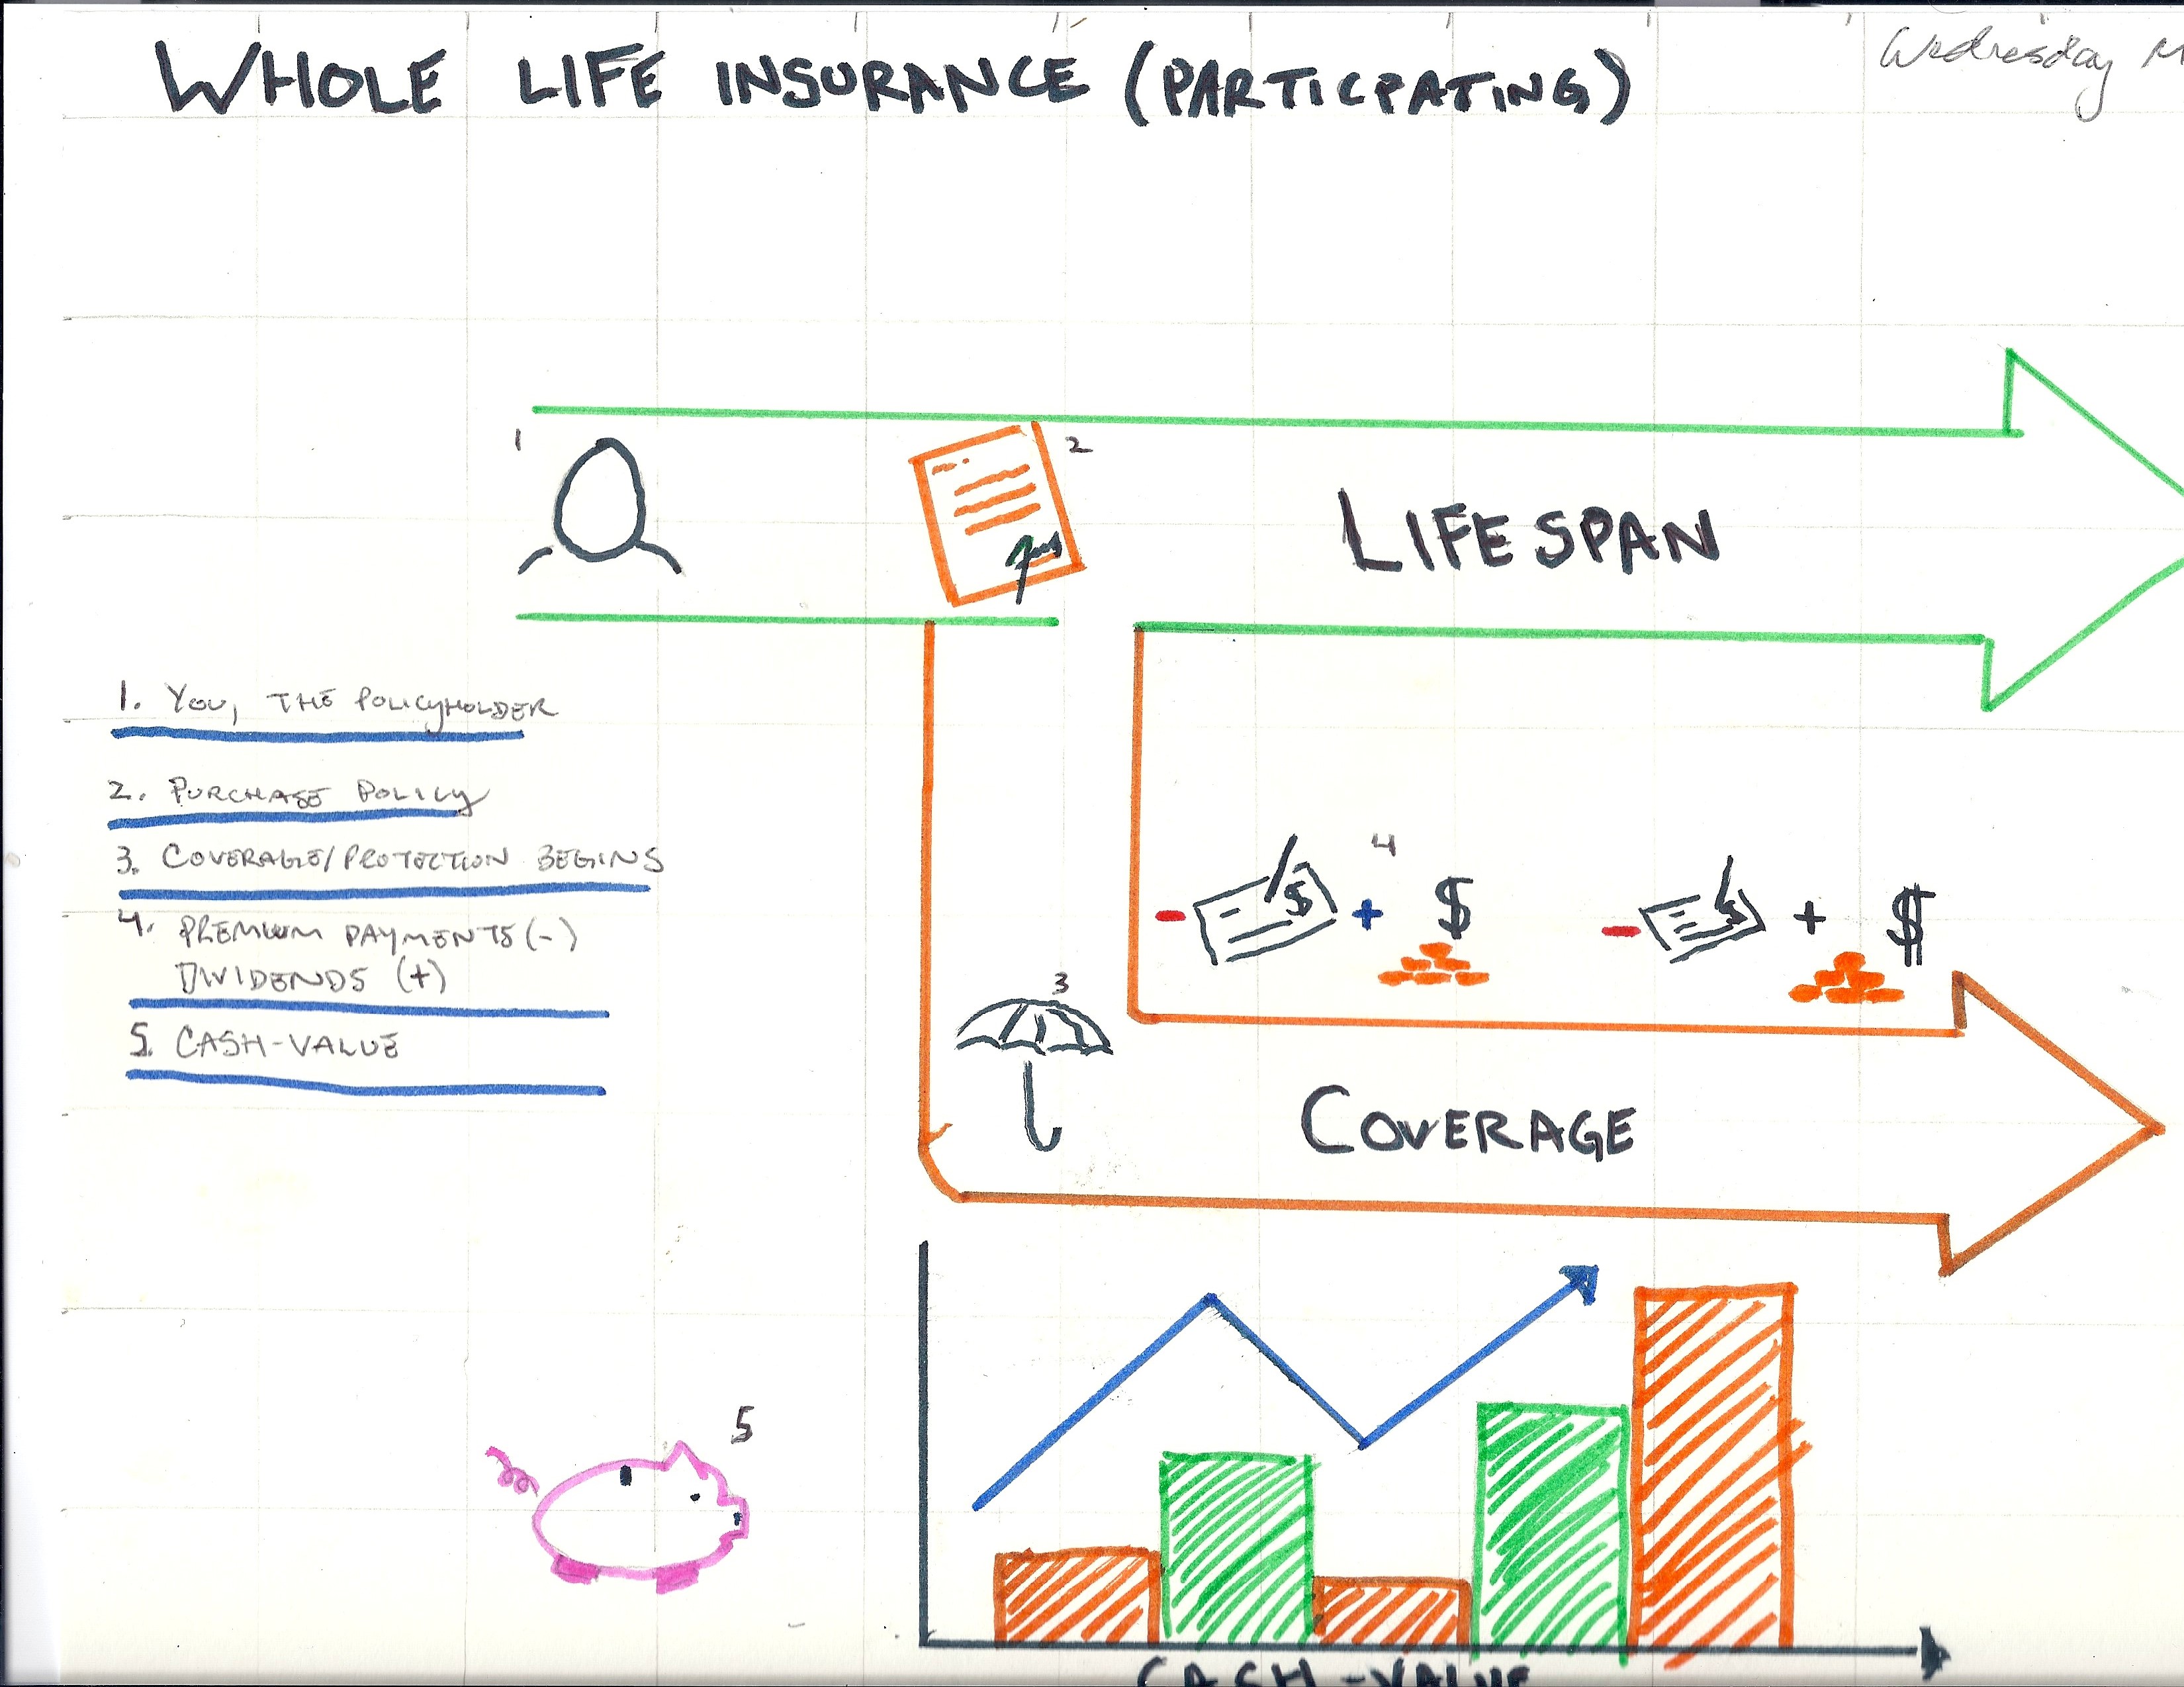 WHOLE LIFE INSURANCE (PARTICPATING)
Wednesday M
1
2
LIFESPAN
1. YOU, THE POLICYHOLDER
2. PURCHASE POLICY
3. COVERAGE/PROTECTION BEGINS
4. PREMIUM PAYMENTS (-)
DIVIDENDS (+)
5. CASH-VALUE
4
- $ + $ - $ + $
3
COVERAGE
5
CASH-VALUE